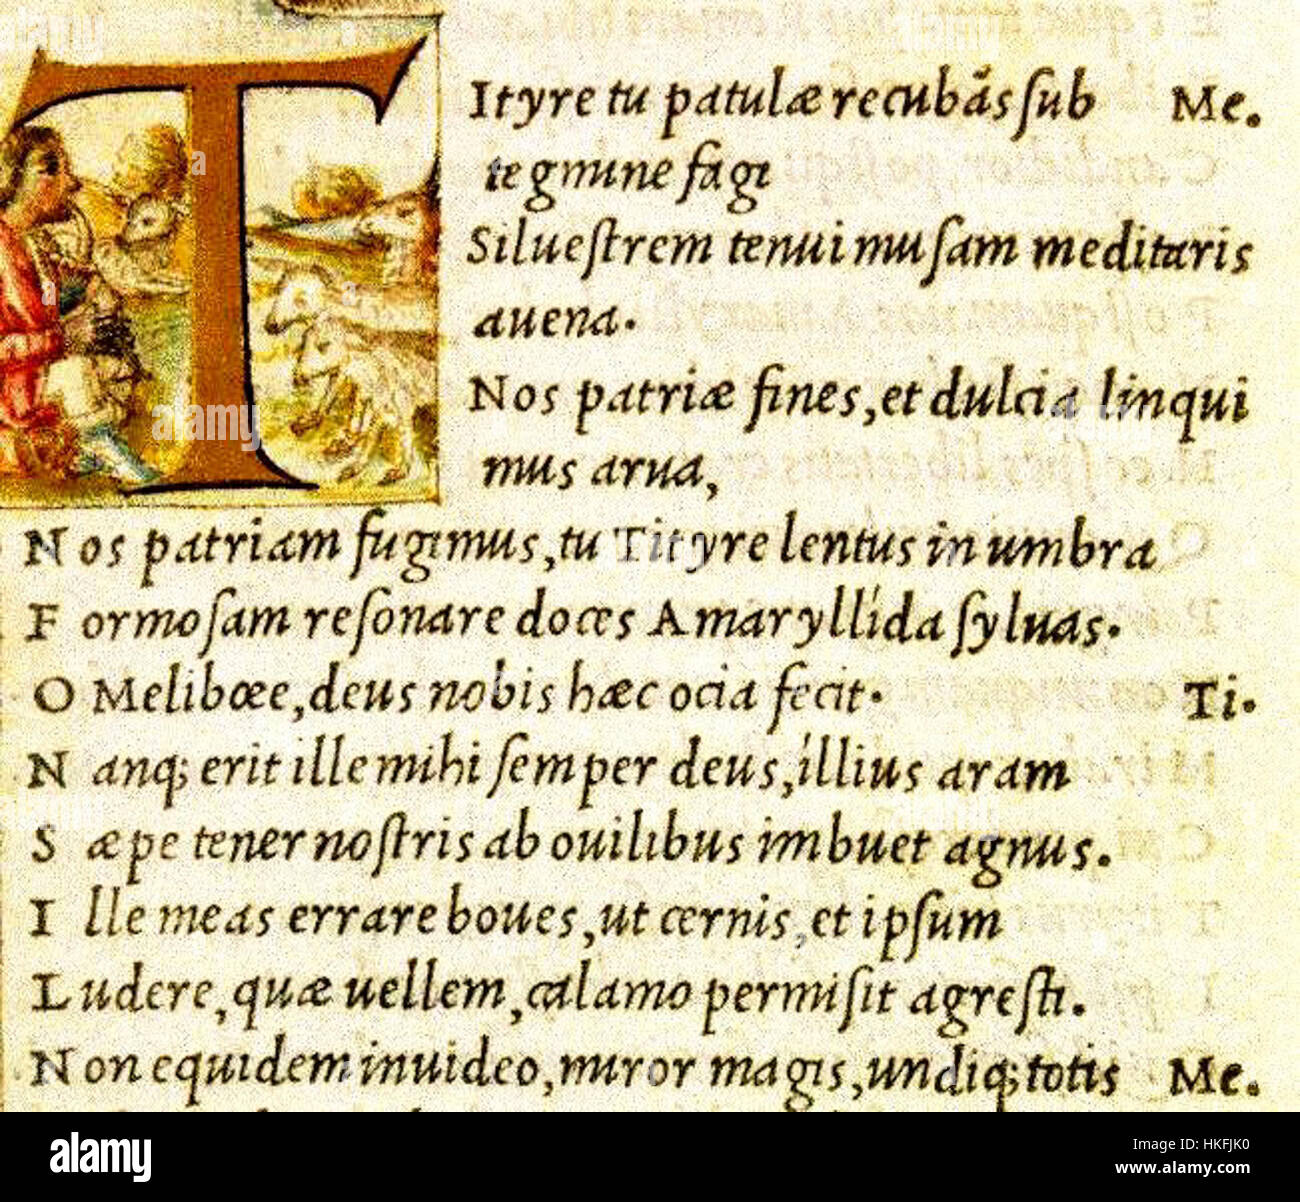 TItyre tu patulæ recubãs sub Me.
tegmine fagi
Siluestrem tenui musam meditaris
auena.
Nos patriæ fines, et dulcia linqui
mus arua,
Nos patriam fugimus, tu Tityre lentus in umbra
Formosam resonare doces Amaryllida syluas.
O Melibœe, deus nobis hæc ocia fecit. Ti.
Nanq; erit ille mihi semper deus, illius aram
Sæpe tener nostris ab ouilibus imbuet agnus.
Ille meas errare boues, ut cernis, et ipsum
Ludere, quæ uellem, calamo permisit agresti.
Non equidem inuideo, miror magis, undiq; totis Me.
alamy
Image ID: HKFJK0
www.alamy.com